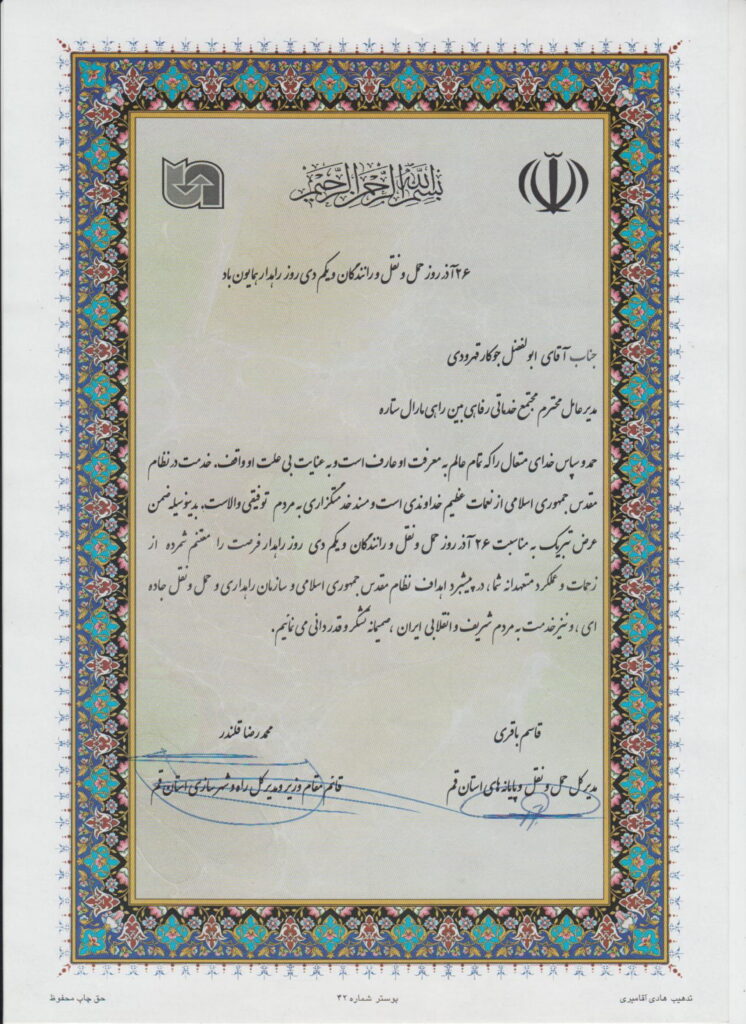 بسم الله الرحمن الرحیم
۲۶ آذر روز حمل و نقل و رانندگان و یکم دی روز راهدار همایون باد
جناب آقای ابولفضل جوکار قهرودی
مدیرعامل محترم مجتمع خدماتی رفاهی بین راهی مارال ستاره
حمد و سپاس خدای متعال را که تمام عالم به معرفت او عارف است و به عنایت بی علت او واقف. خدمت در نظام
مقدس جمهوری اسلامی از نعمات عظیم خداوندی است و مسند خدمتگزاری به مردم توفیقی والاست. بدینوسیله ضمن
عرض تبریک به مناسبت ۲۶ آذر روز حمل و نقل و رانندگان و یکم دی روز راهدار فرصت را مغتنم شمرده از
زحمات و عملکرد متعهدانه شما، در پیشبرد اهداف نظام مقدس جمهوری اسلامی و سازمان راهداری و حمل و نقل جاده
ای، و نیز خدمت به مردم شریف و انقلابی ایران، صمیمانه تشکر و قدردانی می نمایم.
قاسم باقری
مدیر کل حمل و نقل و پایانه های استان قم
محمدرضا قلندر
قائم مقام وزیر و مدیر کل راه و شهرسازی استان قم
تذهیب هادی آقامیری
پوستر شماره ۴۲
حق چاپ محفوظ